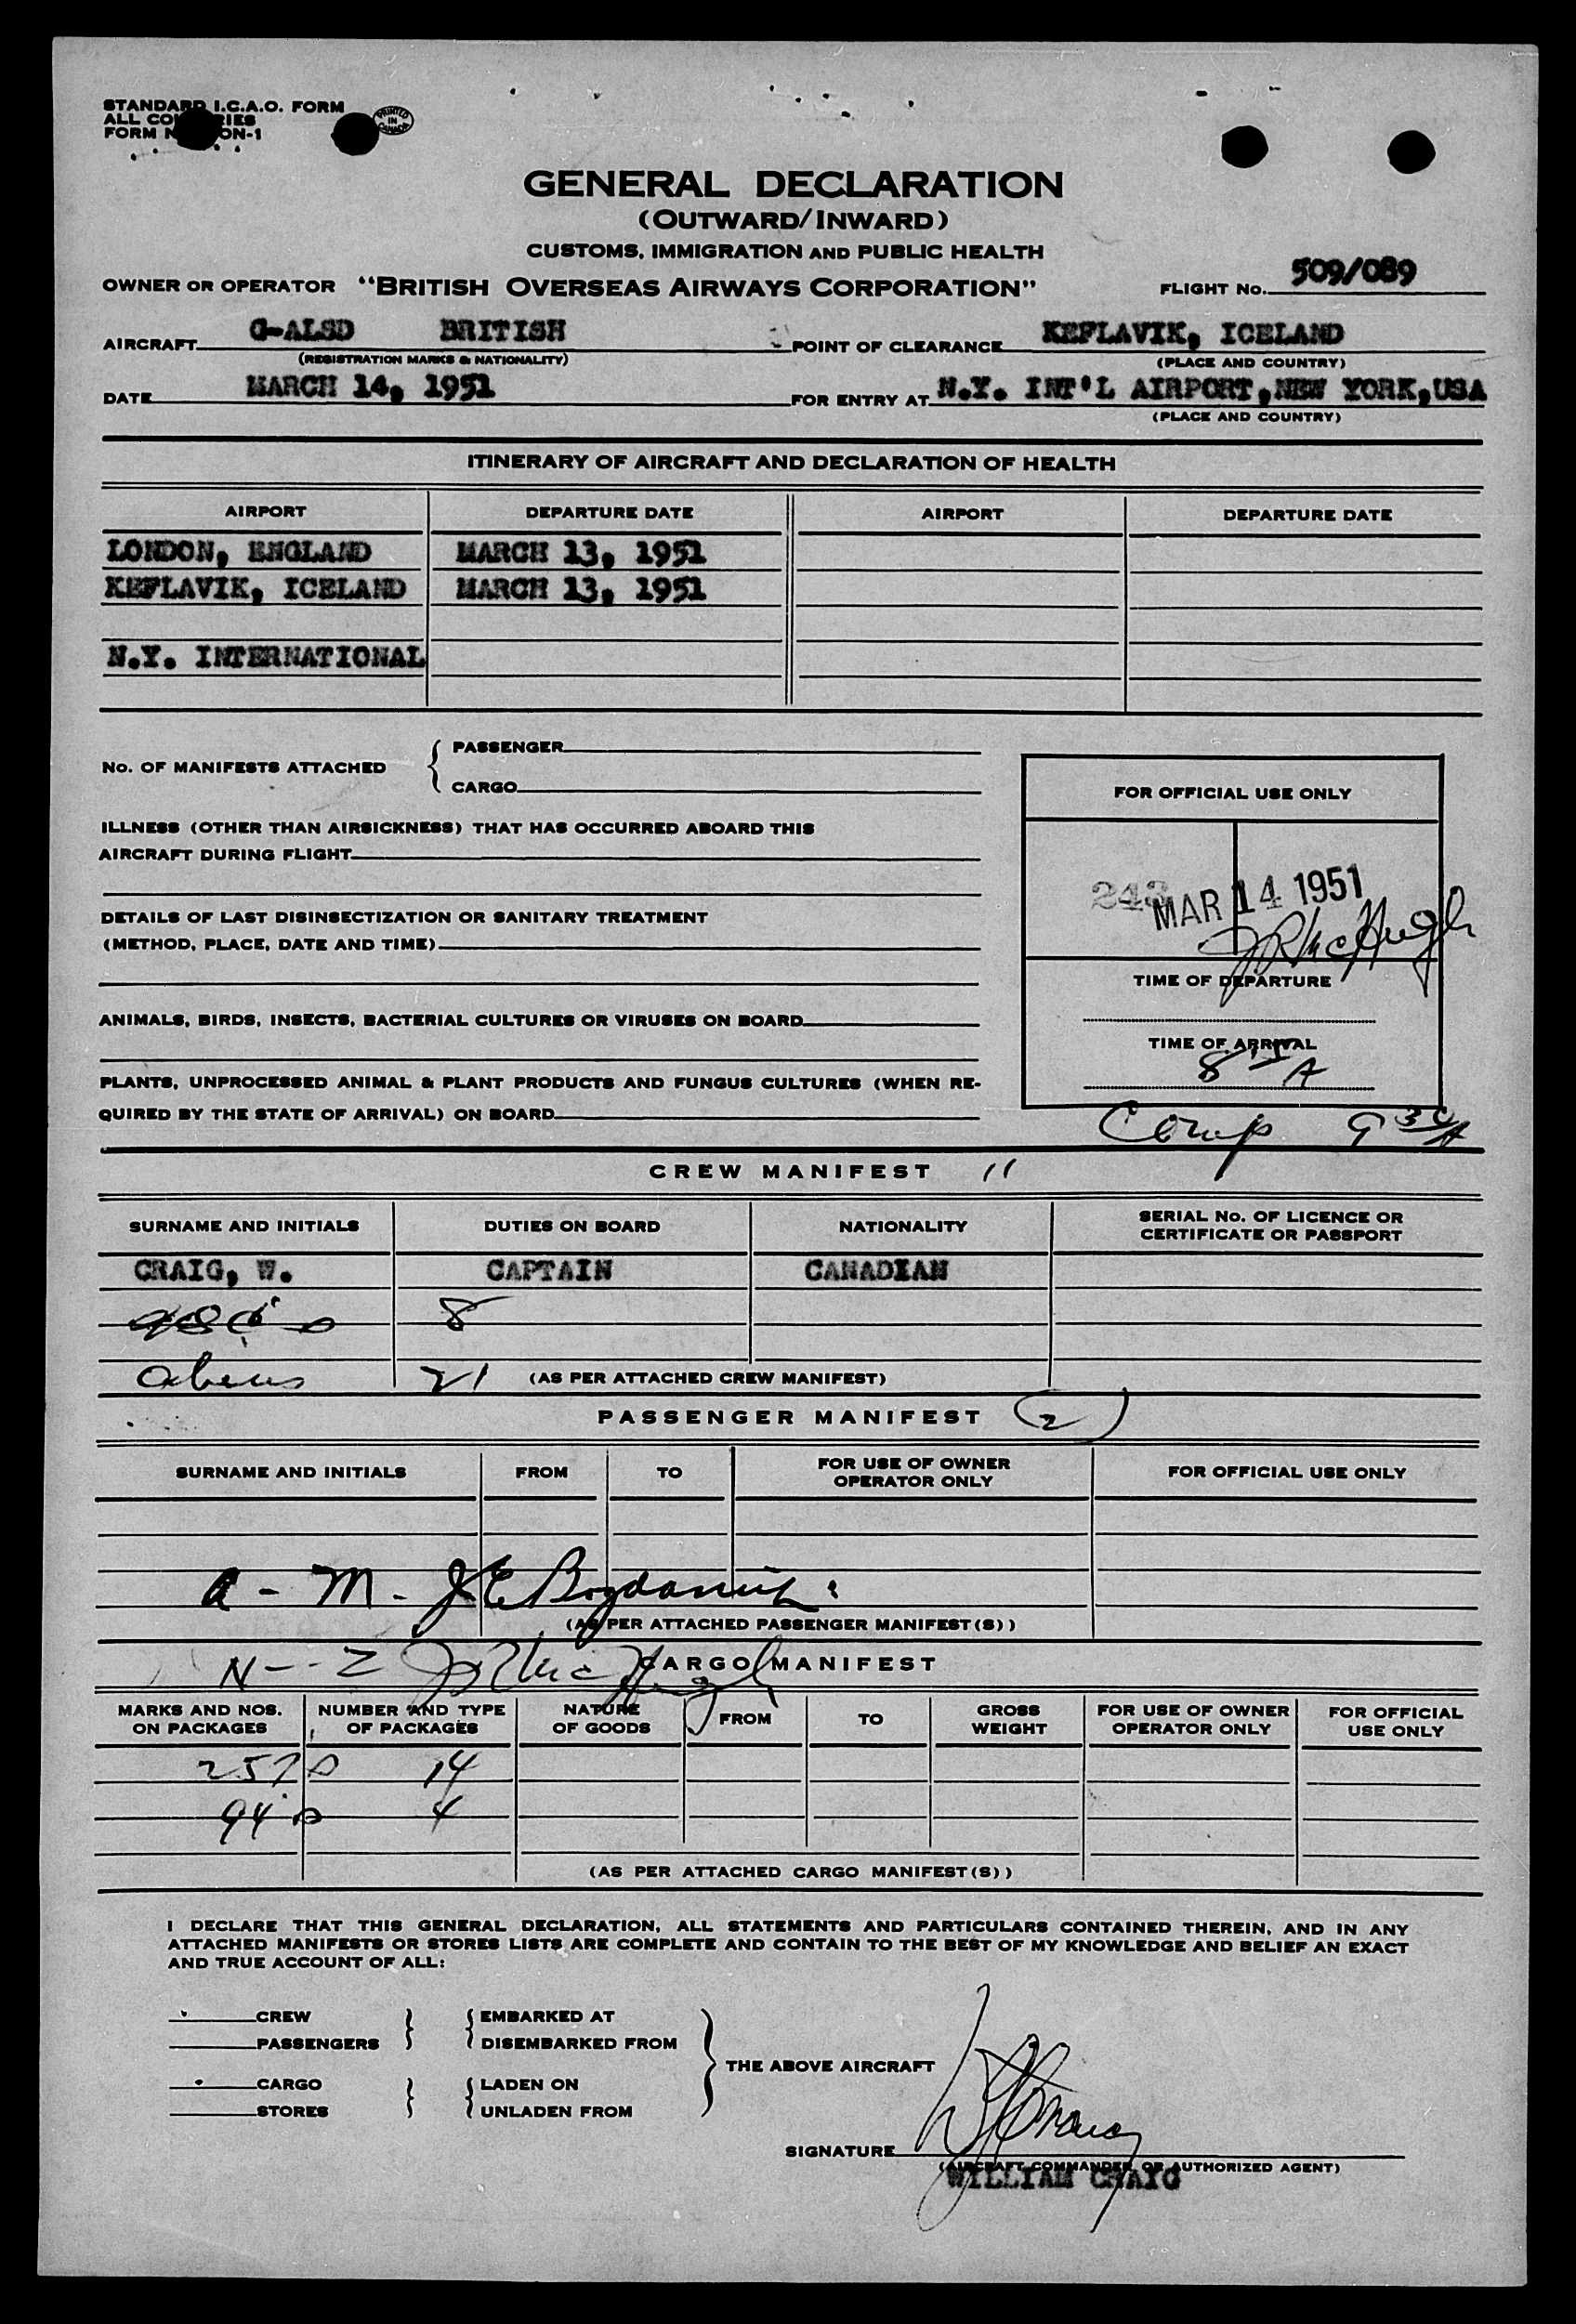 STANDARD I.C.A.O. FORM
ALL
FORM ON-1
PRINTED IN CANADA
GENERAL DECLARATION
(OUTWARD/INWARD)
CUSTOMS, IMMIGRATION AND PUBLIC HEALTH
OWNER OR OPERATOR "BRITISH OVERSEAS AIRWAYS CORPORATION" FLIGHT No. 509/089
AIRCRAFT G-ALSD BRITISH POINT OF CLEARANCE KEFLAVIK, ICELAND
(REGISTRATION MARKS & NATIONALITY) (PLACE AND COUNTRY)
DATE MARCH 14, 1951 FOR ENTRY AT N.Y. INT'L AIRPORT, NEW YORK, USA
(PLACE AND COUNTRY)
ITINERARY OF AIRCRAFT AND DECLARATION OF HEALTH
AIRPORT DEPARTURE DATE AIRPORT DEPARTURE DATE
LONDON, ENGLAND MARCH 13, 1951
KEFLAVIK, ICELAND MARCH 13, 1951
N.Y. INTERNATIONAL
No. OF MANIFESTS ATTACHED
PASSENGER
CARGO
ILLNESS (OTHER THAN AIRSICKNESS) THAT HAS OCCURRED ABOARD THIS
AIRCRAFT DURING FLIGHT
DETAILS OF LAST DISINSECTIZATION OR SANITARY TREATMENT
(METHOD, PLACE, DATE AND TIME)
ANIMALS, BIRDS, INSECTS, BACTERIAL CULTURES OR VIRUSES ON BOARD
PLANTS, UNPROCESSED ANIMAL & PLANT PRODUCTS AND FUNGUS CULTURES (WHEN RE-
QUIRED BY THE STATE OF ARRIVAL) ON BOARD
FOR OFFICIAL USE ONLY
243 MAR 14 1951
JR McHugh
TIME OF DEPARTURE
TIME OF ARRIVAL
Comp 9 30 A
CREW MANIFEST 11
SURNAME AND INITIALS DUTIES ON BOARD NATIONALITY SERIAL No. OF LICENCE OR
CERTIFICATE OR PASSPORT
CRAIG, W. CAPTAIN CANADIAN
8
aliens 21 (AS PER ATTACHED CREW MANIFEST)
PASSENGER MANIFEST 2
SURNAME AND INITIALS FROM TO FOR USE OF OWNER
OPERATOR ONLY FOR OFFICIAL USE ONLY
A - M - JE
(AS PER ATTACHED PASSENGER MANIFEST(S))
N - Z JR McHugh
CARGO MANIFEST
MARKS AND NOS.
ON PACKAGES NUMBER AND TYPE
OF PACKAGES NATURE
OF GOODS FROM TO GROSS
WEIGHT FOR USE OF OWNER
OPERATOR ONLY FOR OFFICIAL
USE ONLY
14
94 4
(AS PER ATTACHED CARGO MANIFEST(S))
I DECLARE THAT THIS GENERAL DECLARATION, ALL STATEMENTS AND PARTICULARS CONTAINED THEREIN, AND IN ANY
ATTACHED MANIFESTS OR STORES LISTS ARE COMPLETE AND CONTAIN TO THE BEST OF MY KNOWLEDGE AND BELIEF AN EXACT
AND TRUE ACCOUNT OF ALL:
CREW EMBARKED AT
PASSENGERS DISEMBARKED FROM
THE ABOVE AIRCRAFT
CARGO LADEN ON
STORES UNLADEN FROM
SIGNATURE
(AIRCRAFT COMMANDER OR AUTHORIZED AGENT)
WILLIAM CRAIG